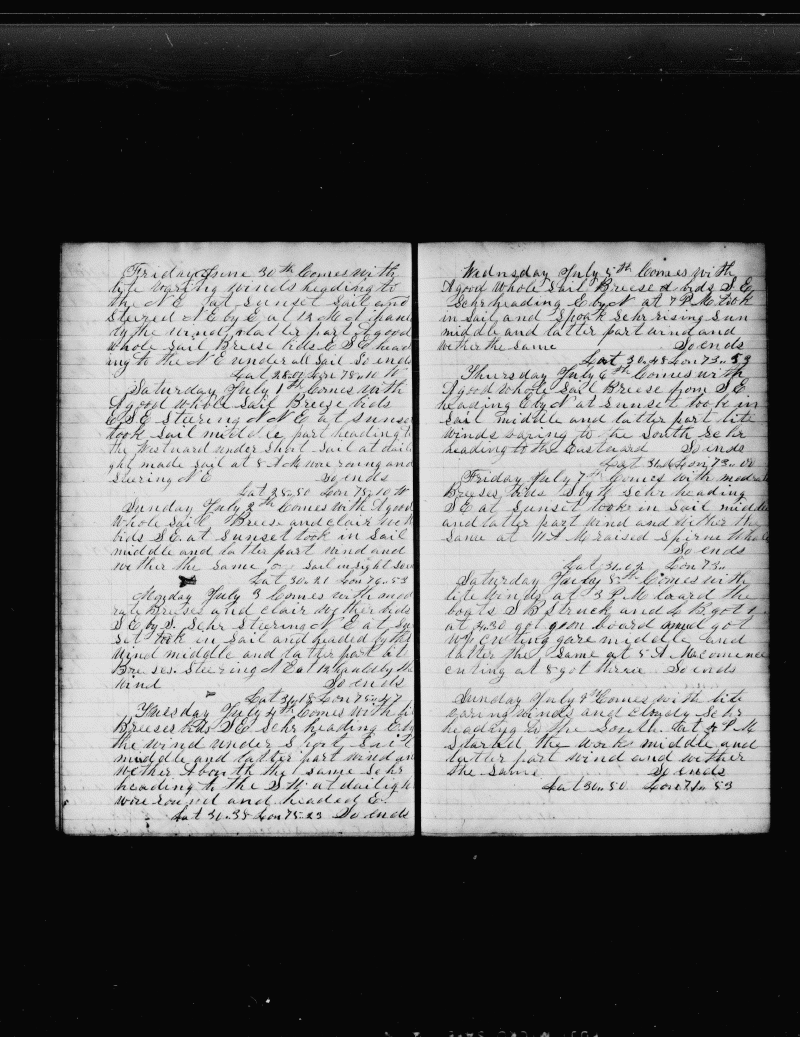 Friday June 30th Comes with
lite varing winds heading to
the N E at Sunset Sail and
Steered N E by E at 12 M
by the wind latter part A good
whole Sail Breese bids E S E head
ing to the N E under all Sail So ends
Lat 28.. Lon 78..10 W
Saturday July 1th Comes with
A good whole Sail Breese bids
E S E Steering N N E at Sunset
took Sail middle part heading to
the Westward under Short Sail at dail
ght made Sail at 8 A M wore roung and
Steering N E So ends
Lat 28..50 Lon 78..10 W
Sunday July 2th Comes with A good
Whole Sail Breese and clair
bids S E. at Sunset took in Sail
middle and latter part wind and
wether the same sail in sight
Lat 30..21 Lon 76..53
Monday July 3 Comes with mod
rate Breeses and clair wether bids
S E by S. Schr Steering N E at Su
Set took in Sail and headed by the
Wind middle and latter part lit
Breeses. Steering N E at 12 hauld by the
wind So ends
Lat 31..18 Lon 75..47
Tuesday July 4th Comes with li
Breeses bids S E Schr heading E by
the wind under S port Sail
middle and latter part wind an
wether about the same Schr
heading to the S W at dailigh
wore round and headed E.
Lat 30..38 Lon 75..23 So ends
Wadnsday July 5th Comes with
A good Whole Sail Breese bids S. E
Schr heading E by N at 7 P M. took
in Sail and Spoak Schr rising Sun
middle and latter part wind and
wether the same So ends
Lat 30..48 Lon 73..59
Thursday July 6th Comes with
A good Whole Sail Breese from S E
heading E by N at Sunset took in
Sail middle and latter part lite
winds varing to the South Schr
heading to the Eastward So ends
Lat 31.. Lon 73..00
Friday July 7th Comes with modrat
Breeses bids S by W Schr heading
S E at Sunset took in Sail middle
and latter part wind and wether the
same at 11 A M raised Spirm Whale
So ends
Lat 31..02 Lon 73..
Saturday July 8th Comes with
lite Winds at 3 P M loard the
boats S B Struck and L B got
at 4..30 got on board and got
up cuting gare middle and
latter the same at 5 A M comence
cuting at 8 got threw So ends
Sunday July 9th Comes with lite
varing winds and Cloudy Schr
heading to the South at 4 P M
Started the works middle and
latter part wind and wether
the same So ends
Lat 30..50 Lon 71..53